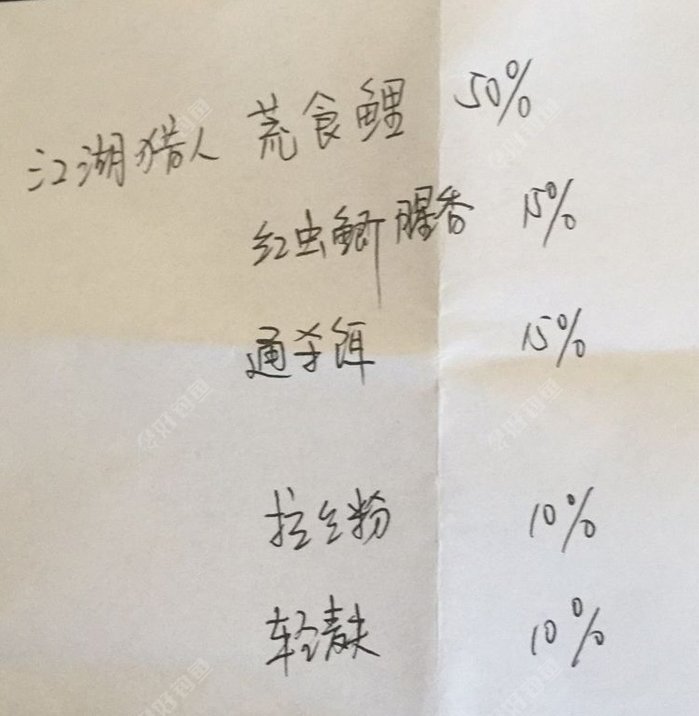 江湖猎人 荒食鲤 50%
红虫鲫腥香 15%
通杀饵 15%
拉丝粉 10%
轻麸 10%